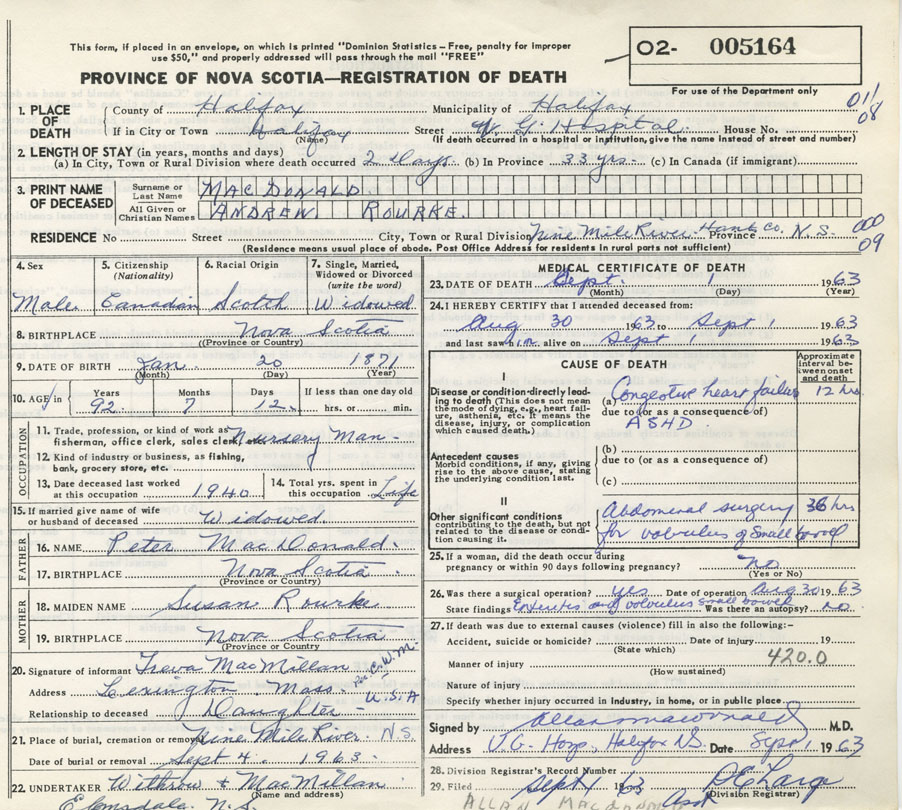 This form, if placed in an envelope, on which is printed "Dominion Statistics – Free, penalty for improper
use $50," and properly addressed will pass through the mail "FREE"
O2- 005164
PROVINCE OF NOVA SCOTIA—REGISTRATION OF DEATH
For use of the Department only
1. PLACE OF DEATH
County of Halifax Municipality of Halifax 011
If in City or Town Halifax Street V. G. Hospital House No. 08
(Name) (If death occurred in a hospital or institution, give the name instead of street and number)
2. LENGTH OF STAY (in years, months and days)
(a) In City, Town or Rural Division where death occurred 2 days (b) In Province 33 yrs. (c) In Canada (if immigrant)
3. PRINT NAME OF DECEASED
Surname or Last Name MACDONALD
All Given or Christian Names ANDREW ROURKE.
RESIDENCE No Street City, Town or Rural Division Nine Mile River Hants Co. Province N.S. 000
09
(Residence means usual place of abode. Post Office Address for residents in rural parts not sufficient)
4. Sex 5. Citizenship (Nationality) 6. Racial Origin 7. Single, Married, Widowed or Divorced (write the word)
Male Canadian Scotch Widowed
8. BIRTHPLACE Nova Scotia
(Province or Country)
9. DATE OF BIRTH Jan. 20 1871
(Month) (Day) (Year)
10. AGE in Years Months Days If less than one day old
92 7 12 hrs. or min.
OCCUPATION
11. Trade, profession, or kind of work as fisherman, office clerk, sales clerk, etc. Nursery Man -
12. Kind of industry or business, as fishing, bank, grocery store, etc.
13. Date deceased last worked at this occupation 1940 14. Total yrs. spent in this occupation Life
15. If married give name of wife or husband of deceased Widowed.
FATHER
16. NAME Peter MacDonald.
17. BIRTHPLACE Nova Scotia
(Province or Country)
MOTHER
18. MAIDEN NAME Susan Rourke
19. BIRTHPLACE Nova Scotia
(Province or Country)
20. Signature of informant Treva MacMillan Per C.W.M.
Address Lexington Mass. U.S.A
Relationship to deceased Daughter -
21. Place of burial, cremation or removal Nine Mile River N.S.
Date of burial or removal Sept 4. 1963.
22. UNDERTAKER Withrow & MacMillan
(Name and address)
Elmsdale. N.S.
MEDICAL CERTIFICATE OF DEATH
23. DATE OF DEATH Sept. 1 1963
(Month) (Day) (Year)
24. I HEREBY CERTIFY that I attended deceased from:
Aug 30 1963 to Sept 1 1963
and last saw him alive on Sept 1 1963
CAUSE OF DEATH
Approximate interval between onset and death
I
Disease or condition directly leading to death (This does not mean the mode of dying, e.g., heart failure, asthenia, etc. It means the disease, injury, or complication which caused death.)
(a) Congestive heart failure 12 hrs.
due to (or as a consequence of)
ASHD
Antecedent causes
Morbid conditions, if any, giving rise to the above cause, stating the underlying condition last.
(b)
due to (or as a consequence of)
(c)
II
Other significant conditions contributing to the death, but not related to the disease or condition causing it.
Abdominal surgery 36 hrs
for volvulus of small bowel
25. If a woman, did the death occur during pregnancy or within 90 days following pregnancy? no
(Yes or No)
26. Was there a surgical operation? yes Date of operation Aug 30 1963
State findings Enteritis and volvulus small bowel Was there an autopsy? no
27. If death was due to external causes (violence) fill in also the following:–
Accident, suicide or homicide? Date of injury 19
(State which)
Manner of injury 420.0
(How sustained)
Nature of injury
Specify whether injury occurred in Industry, in home, or in public place
Signed by Allan Macdonald M.D.
Address V.G. Hosp, Halifax N.S. Date Sept 1 1963
28. Division Registrar's Record Number
29. Filed Sept 4 1963
(Division Registrar)
ALLAN MACDONALD